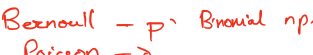 Bernoull - p` Binomial np.
Poisson → λ